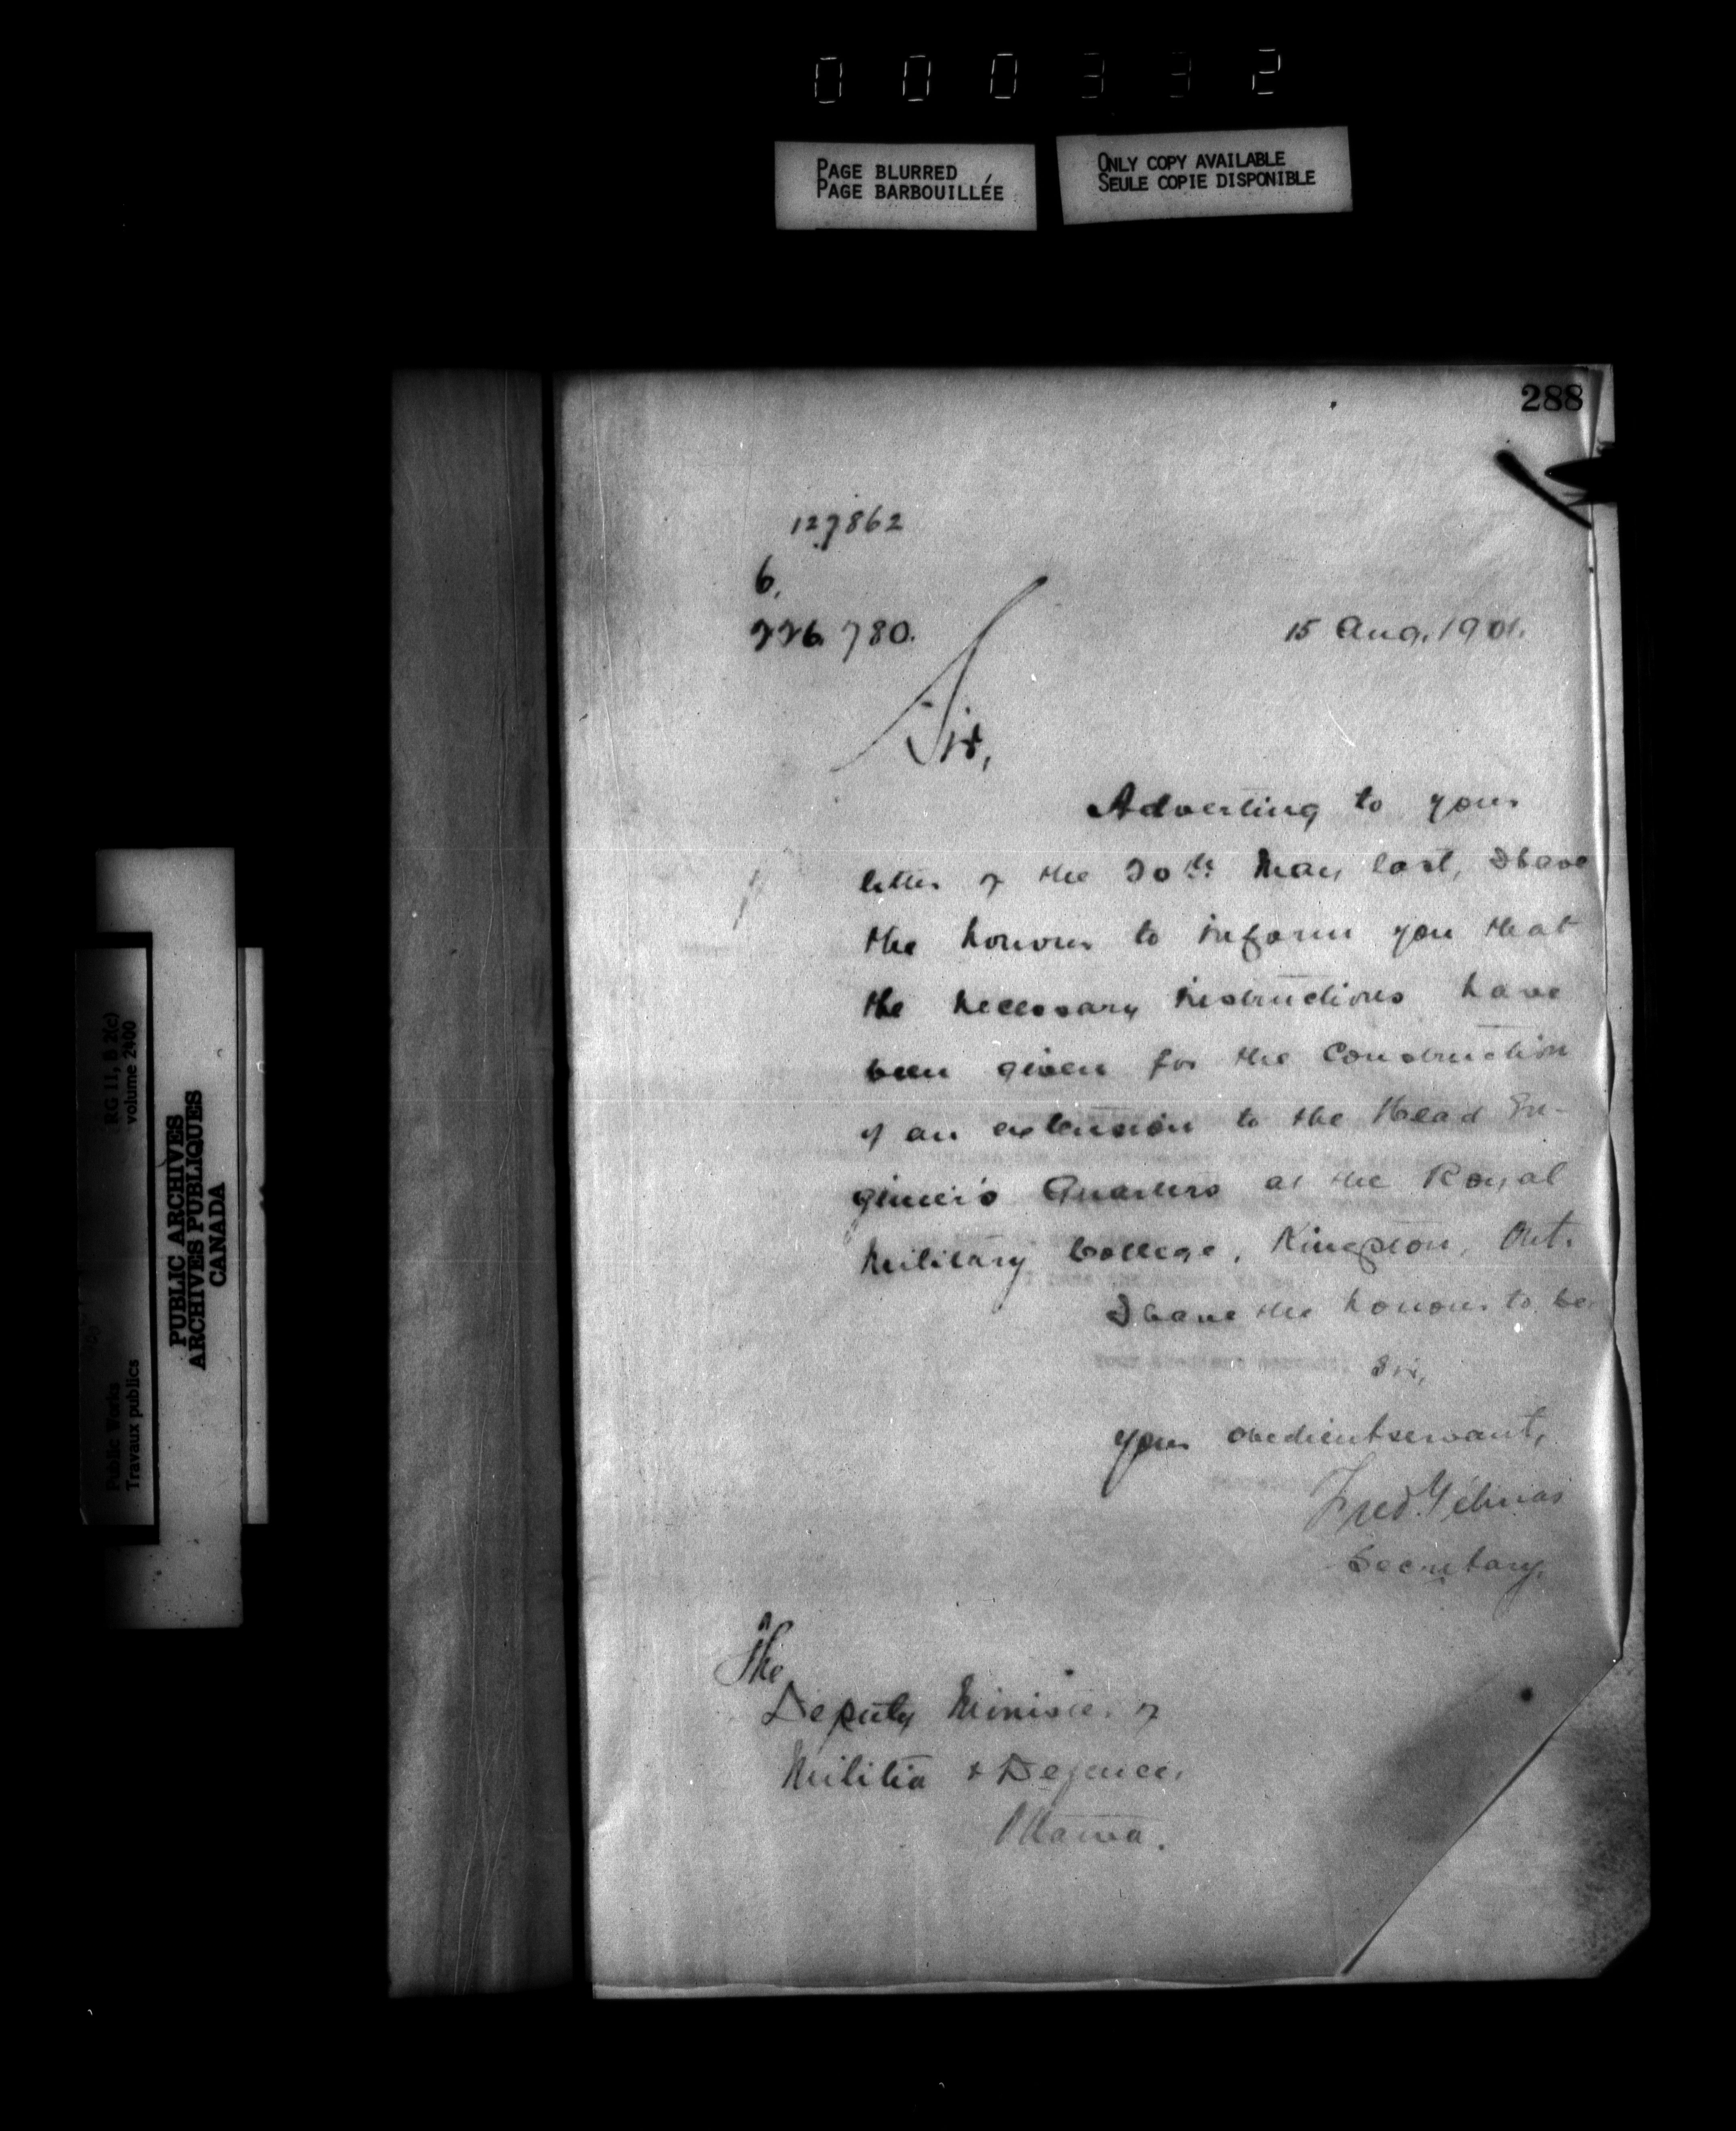 000332
PAGE BLURRED
PAGE BARBOUILLÉE
ONLY COPY AVAILABLE
SEULE COPIE DISPONIBLE
288
127862
6.
226780.
15 Aug. 1901.
Sir,
Adverting to your
letter of the 20th May last, I have
the honour to inform you that
the necessary instructions have
been given for the construction
of an extension to the Head En-
gineer's Quarters at the Royal
Military College, Kingston, Ont.
I have the honour to be
Sir,
your obedient servant,
Fred. Gélinas
Secretary.
The
Deputy Minister of
Militia & Defence,
Ottawa.
RG 11, B 2(c)
volume 2400
Public Works
Travaux publics
PUBLIC ARCHIVES
ARCHIVES PUBLIQUES
CANADA